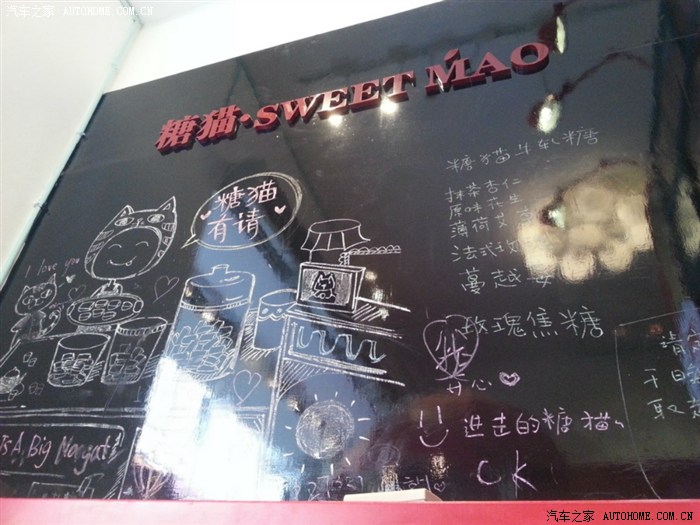 汽车之家 AUTOHOME.COM.CN
糖猫·SWEET MAO
糖猫牛轧糖
糖猫
有请
抹茶杏仁
原味花生
薄荷
法式玫
I love you
蔓越莓
玫瑰焦糖
开心
请
干
取
进走的糖猫~
CK
A Big
汽车之家 AUTOHOME.COM.CN